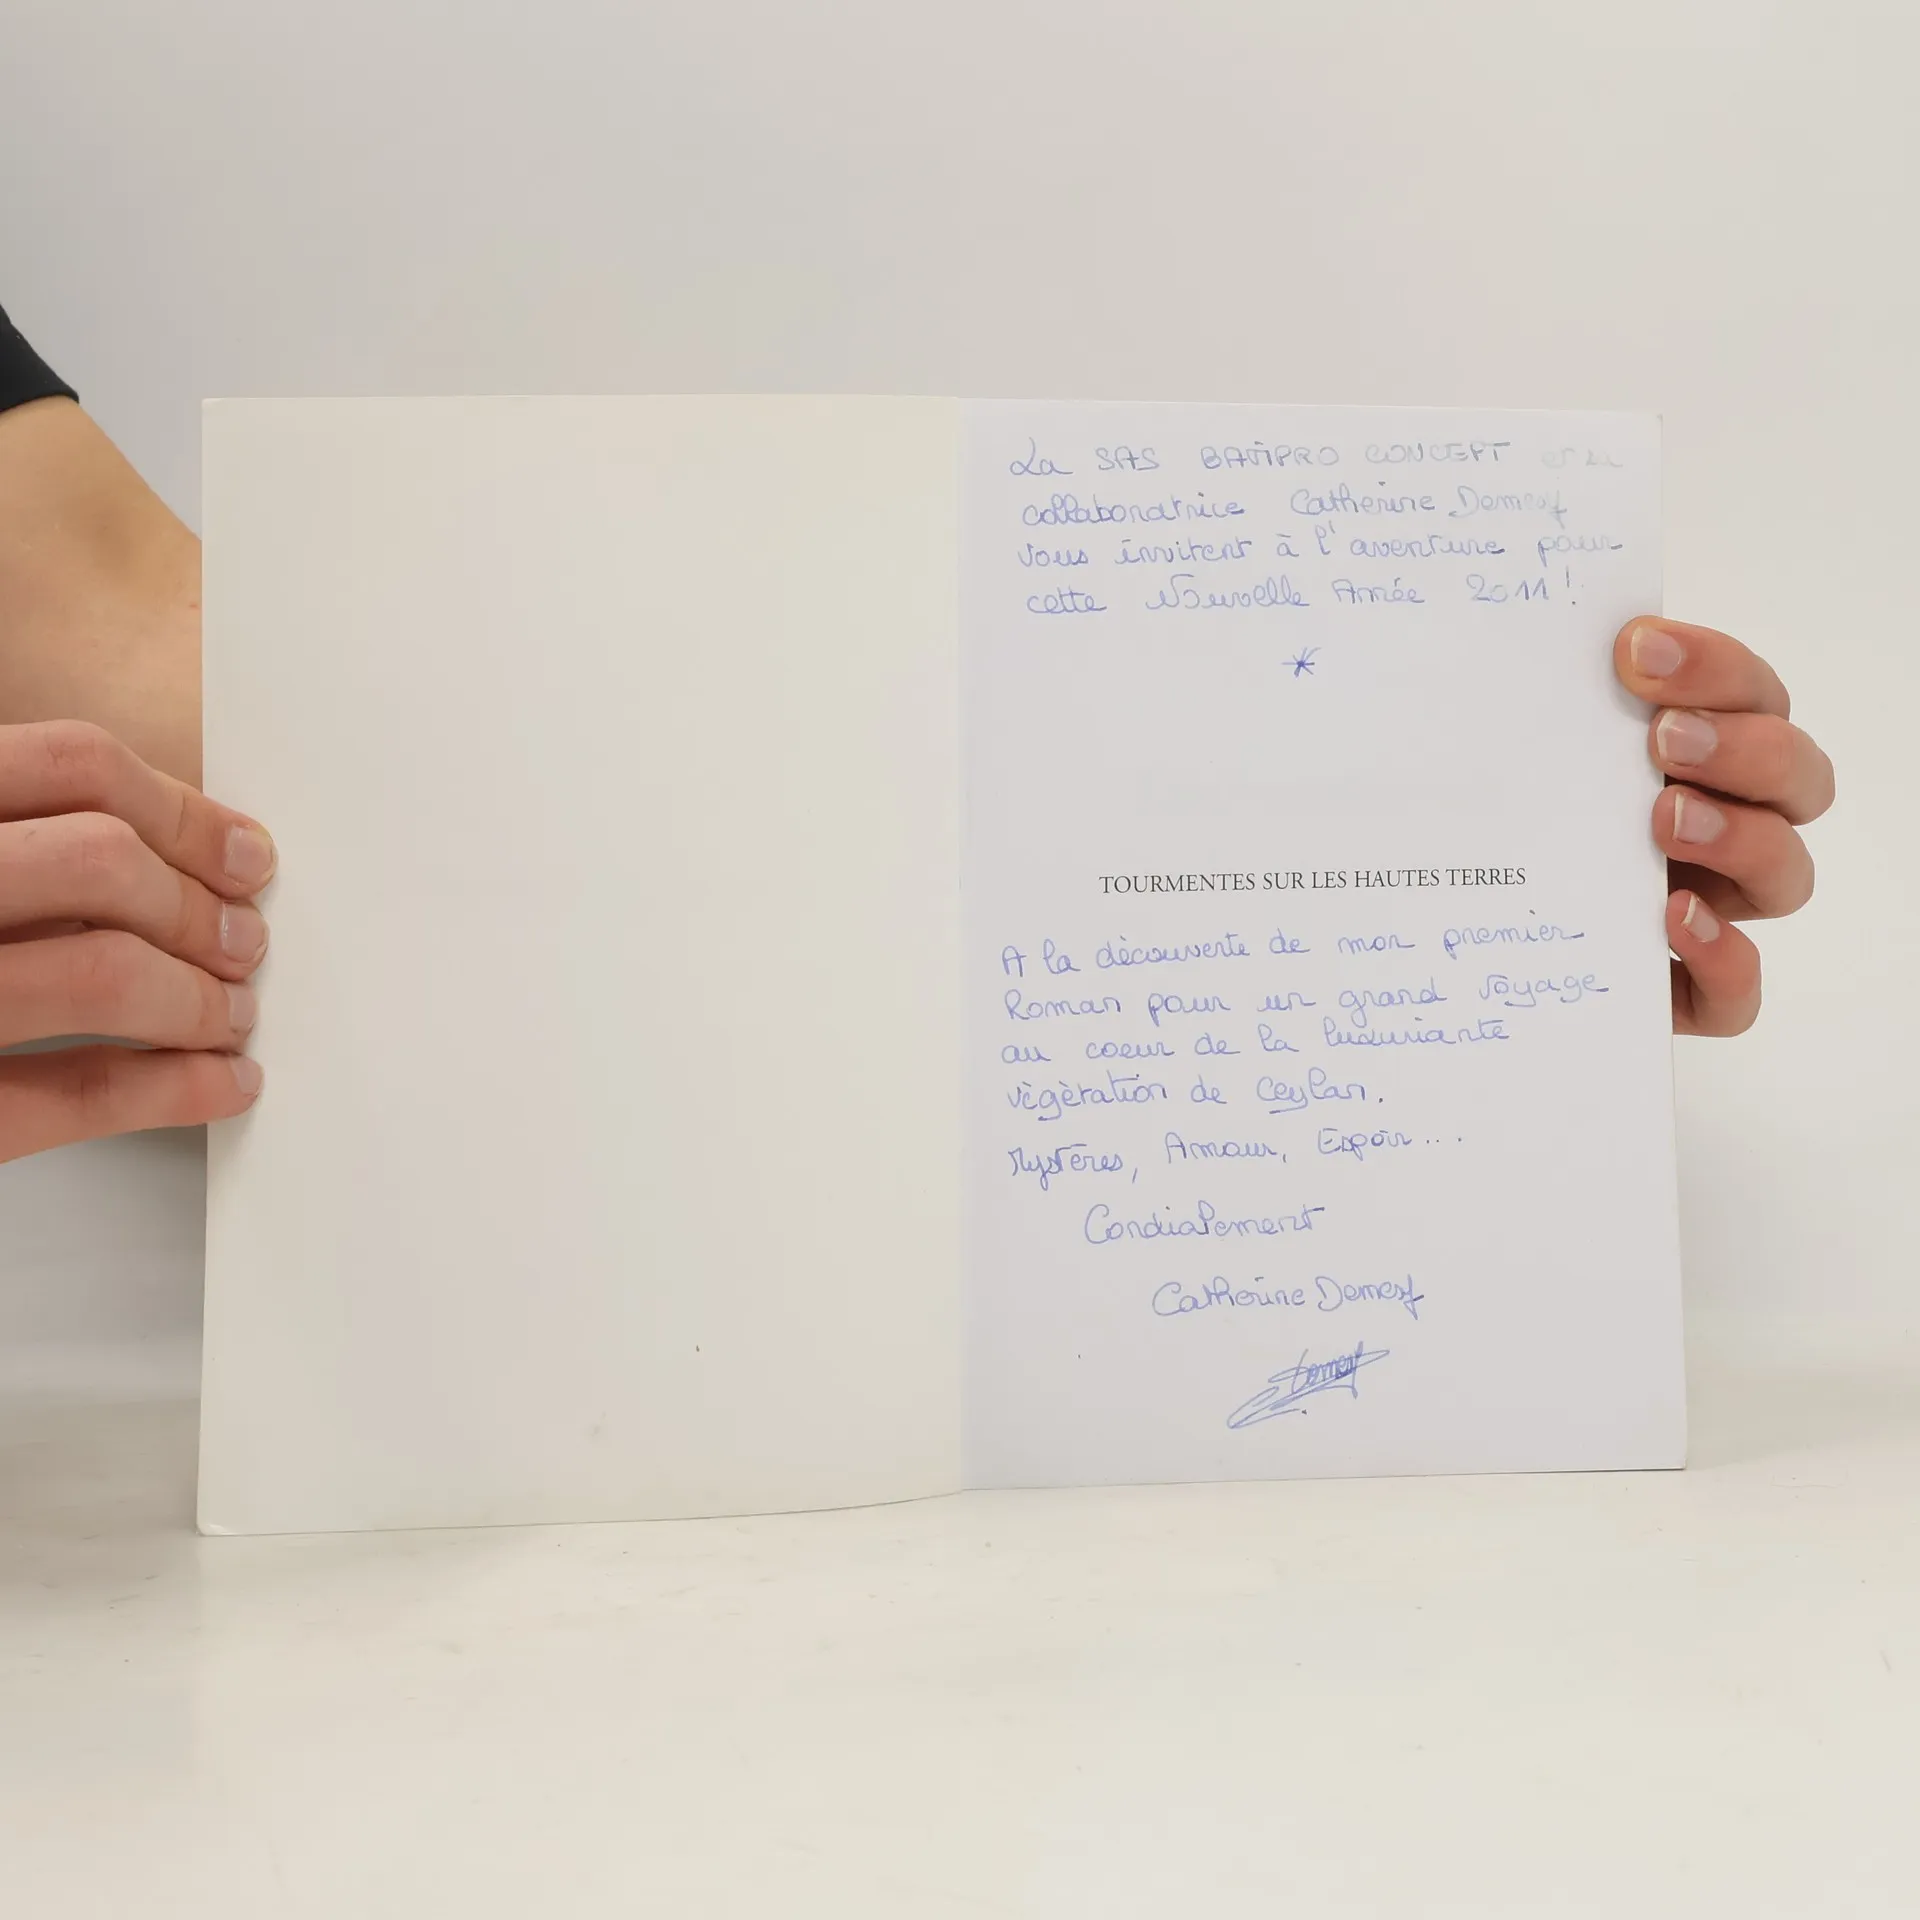 La SAS BATIPRO CONCEPT et sa
collaboratrice Catherine Demesy
vous invitent à l'aventure pour
cette Nouvelle Année 2011 !
*
TOURMENTES SUR LES HAUTES TERRES
A la découverte de mon premier
Roman pour un grand voyage
au coeur de la luxuriante
végètation de Ceylan.
Mystères, Amour, Espoir...
Cordialement
Catherine Demesy